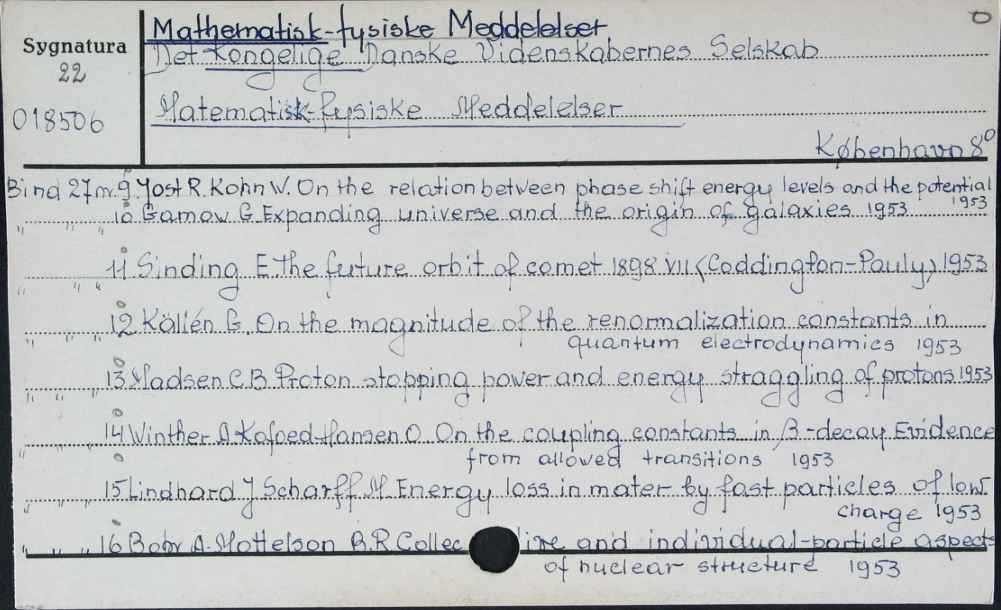 Mathematisk-fysiske Meddelelser
Sygnatura
Det Kongelige Danske Videnskabernes Selskab
22
Matematisk-fysiske Meddelelser
018506
København 8°
Bind 27 nr. 9. Jost R. Kohn W. On the relation between phase shift energy levels and the potential
1953
" " " 10 Gamow G. Expanding universe and the origin of galaxies 1953
" " " 11 Sinding E. The future orbit of comet 1898 VII (Coddington-Pauly) 1953
" " " 12 Källén G. On the magnitude of the renormalization constants in
quantum electrodynamics 1953
" " " 13 Madsen C.B. Proton stopping power and energy straggling of protons 1953
" " " 14 Winther A. Kofoed-Hansen O. On the coupling constants in β-decay Evidence
from allowed transitions 1953
" " " 15 Lindhard J Scharff M. Energy loss in mater by fast particles of low
charge 1953
" " " 16 Bohr A. Mottelson B.R Collec tive and individual-particle aspects
of nuclear structure 1953